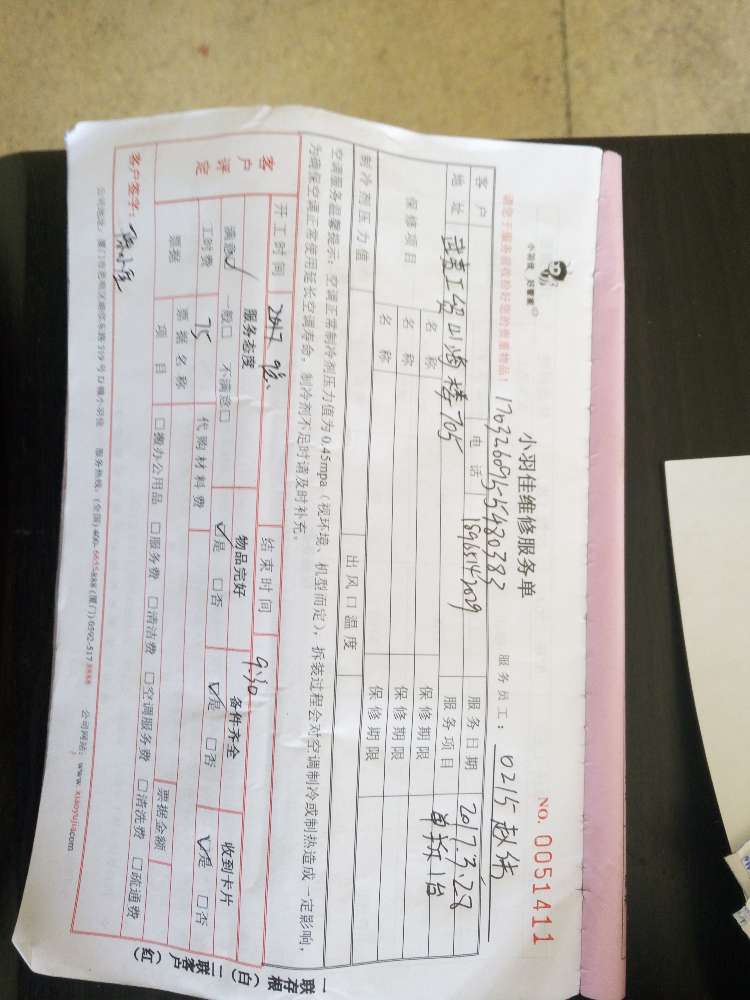 小羽佳 好管家
小羽佳维修服务单
NO. 0051411
请您于服务前收拾好您的贵重物品！
1703260955480383
服务员工：0215
客户 电话 18965142029 服务日期 2017.3.28
地址 楼705 服务项目 单拆1台
保修项目 名称 保修期限
名称 保修期限
名称 保修期限
制冷剂压力值 出风口温度
空调服务温馨提示：空调正常制冷剂压力值为0.45mpa（视环境、机型而定），拆装过程会对空调制冷或制热造成一定影响，
为确保空调正常使用延长空调寿命，制冷剂不足时请及时补充。
开工时间 2017 结束时间 9:30
客户评定 服务态度 物品完好 备件齐全 收到卡片
满意✓ 一般□ 不满意□ ☑是 □否 ☑是 □否 ☑是 □否
工时费 75 代购材料费
票据 票据名称 票据金额
项目 □搬办公用品 □服务费 □清洁费 □空调服务费 □清洗费 □疏通费
客户签字：
公司地址：厦门市思明区 519号 小羽佳 服务热线：(全国)400-6655888 (厦门)0592-5178888 公司网站：www.xiaoyujia.com
一联存根（白）二联客户（红）